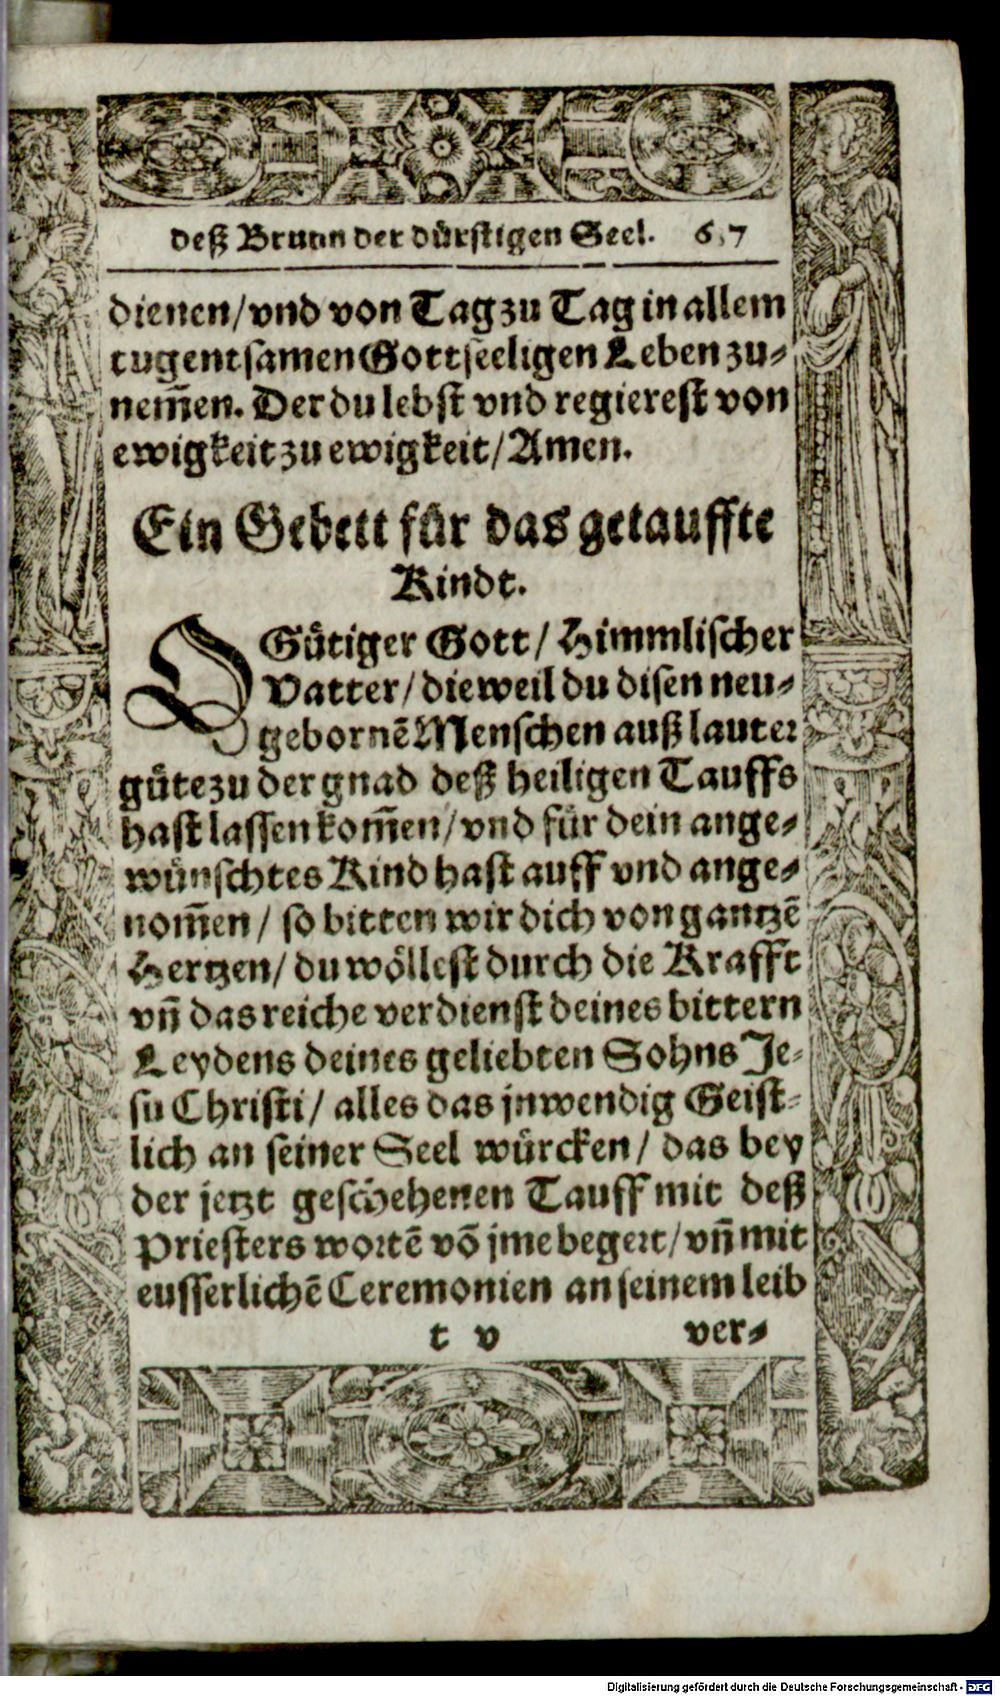 deß Brunn der dürstigen Seel. 617
dienen/ vnd von Tag zu Tag in allem
tugentsamen Gottseeligen Leben zu-
nem̃en. Der du lebst vnd regierest von
ewigkeit zu ewigkeit/ Amen.
Ein Gebett für das getauffte
Kindt.
O Gütiger Gott/ Himmlischer
Vatter/ dieweil du disen neu-
gebornẽ Menschen auß lauter
güte zu der gnad deß heiligen Tauffs
hast lassen kom̃en/ vnd für dein ange-
wünschtes Kind hast auff vnd ange-
nom̃en/ so bitten wir dich von gantzẽ
Hertzen/ du wöllest durch die Krafft
vñ das reiche verdienst deines bittern
Leydens deines geliebten Sohns Je-
su Christi/ alles das jnwendig Geist-
lich an seiner Seel würcken/ das bey
der jetzt geschehenen Tauff mit deß
Priesters wortẽ võ jme begert/ vñ mit
eusserlichẽ Ceremonien an seinem leib
t v ver-
Digitalisierung gefördert durch die Deutsche Forschungsgemeinschaft - DFG